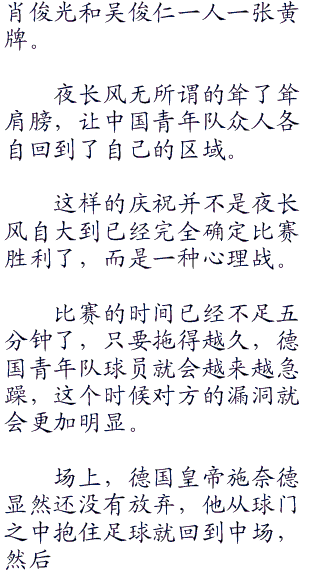 肖俊光和吴俊仁一人一张黄
牌。
夜长风无所谓的耸了耸
肩膀，让中国青年队众人各
自回到了自己的区域。
这样的庆祝并不是夜长
风自大到已经完全确定比赛
胜利了，而是一种心理战。
比赛的时间已经不足五
分钟了，只要拖得越久，德
国青年队球员就会越来越急
躁，这个时候对方的漏洞就
会更加明显。
场上，德国皇帝施奈德
显然还没有放弃，他从球门
之中抱住足球就回到中场，
然后